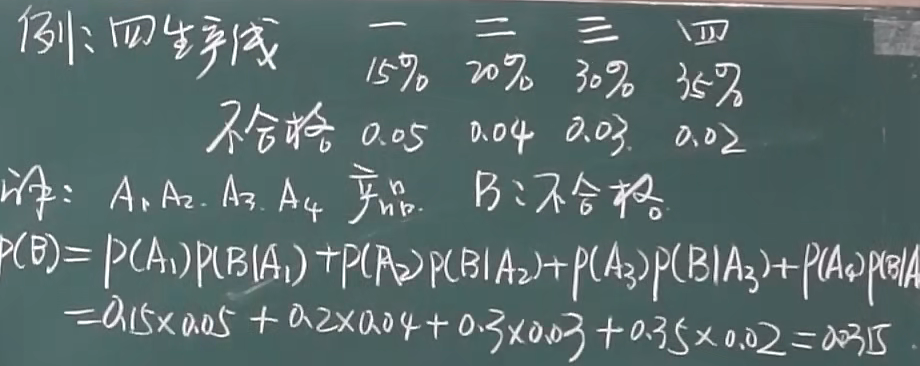 例:四生产线 一 二 三 四
15% 20% 30% 35%
不合格 0.05 0.04 0.03. 0.02
译: A₁ A₂. A₃. A₄ 产品. B:不合格.
P(B)= P(A₁)P(B|A₁)+P(A₂)P(B|A₂)+P(A₃)P(B|A₃)+P(A₄)P(B|A
=0.15×0.05+0.2×0.04+0.3×0.03+0.35×0.02=0.0315.